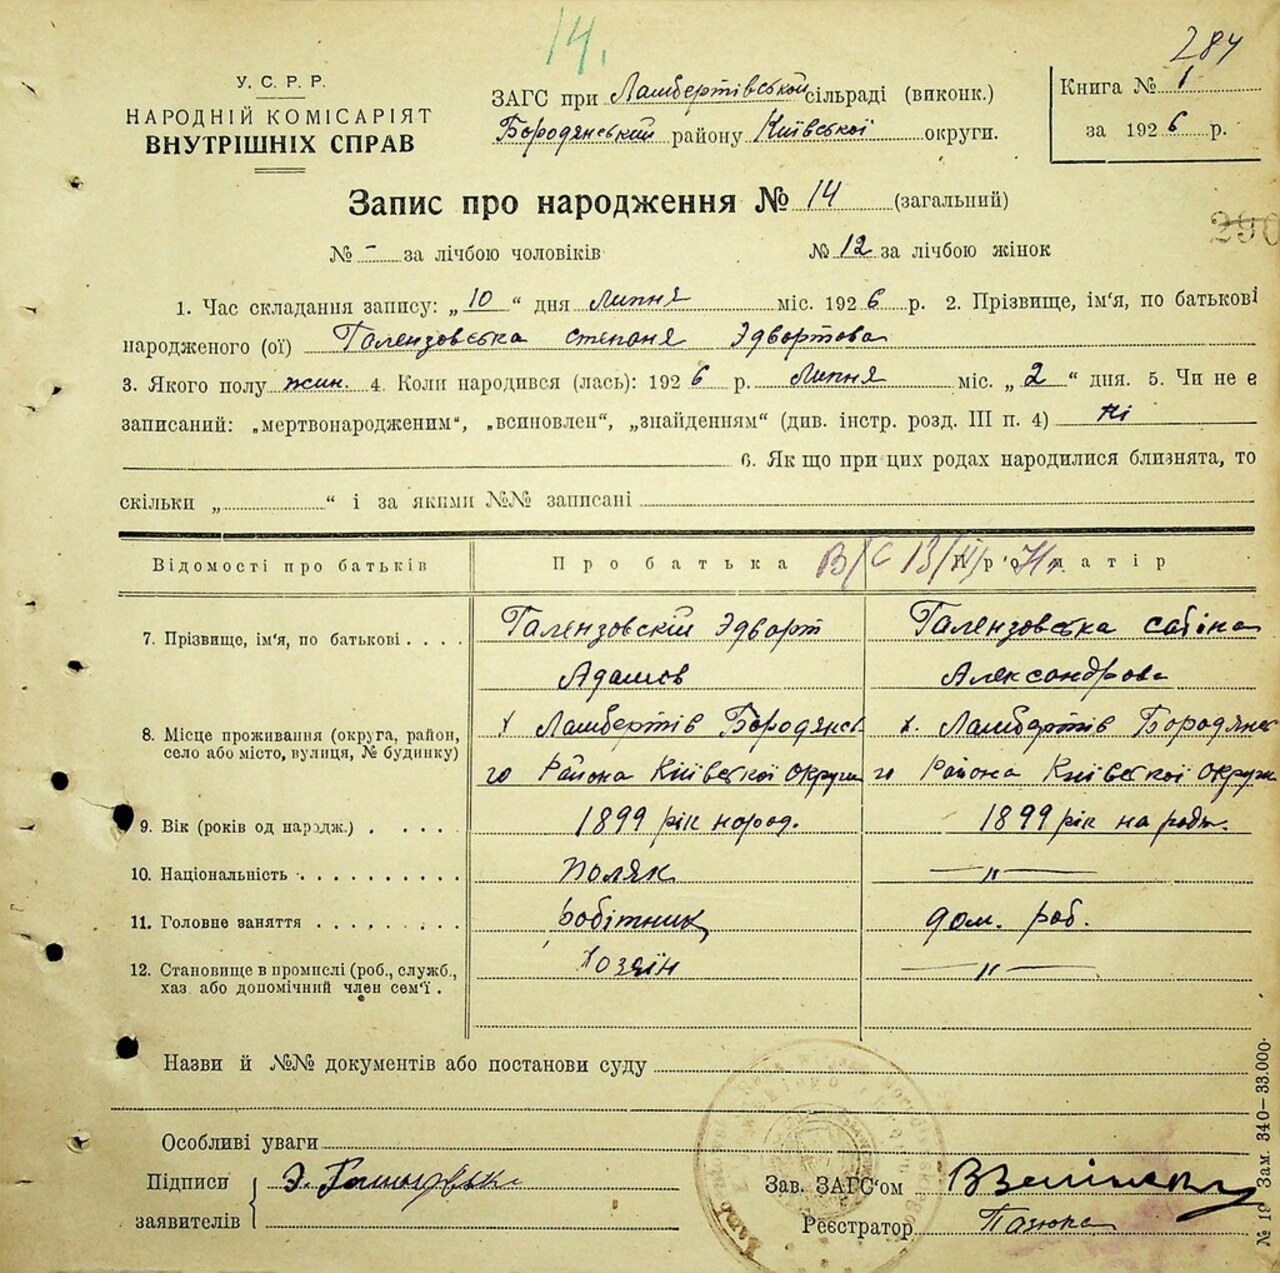 14.
284
У. С. Р. Р.
НАРОДНІЙ КОМІСАРІЯТ
ВНУТРІШНІХ СПРАВ
ЗАГС при Ламбертівській сільраді (виконк.)
Бородянський району Київської округи.
Книга № 1
за 1926 р.
Запис про народження № 14 (загальний)
290
№ - за лічбою чоловіків № 12 за лічбою жінок
1. Час складання запису: „10“ дня Липня міс. 1926 р. 2. Прізвище, ім'я, по батькові
народженого (ої) Галензовська Степаня Эдвортова
3. Якого полу жин. 4. Коли народився (лась): 1926 р. Липня міс. „2“ дня. 5. Чи не є
записаний: „мертвонародженим“, „всиновлен“, „знайденням“ (див. інстр. розд. III п. 4) ні
6. Як що при цих родах народилися близнята, то
скільки „ “ і за якими №№ записані
Відомості про батьків Про батька Про матір
7. Прізвище, ім'я, по батькові . . . . Галензовскій Эдворт Галензовська Сабіна
Адамов Александрова
8. Місце проживання (округа, район, х Ламбертів Бородянсь х. Ламбертів Бородянсь
село або місто, вулиця, № будинку) го Района Київської Округи го Района Київської Округи
9. Вік (років од народж.) . . . . . 1899 рік народ. 1899 рік на родж.
10. Національність . . . . . . . . . . Поляк — „ —
11. Головне заняття . . . . . . . . . робітник дом. роб.
12. Становище в промислі (роб., служб., Хозяін — „ —
хаз. або допомічний член сем'ї .
Назви й №№ документів або постанови суду
Особливі уваги
Підписи
заявителів
Зав. ЗАГС'ом
Реєстратор
№ 19 Зам. 340—33.000.